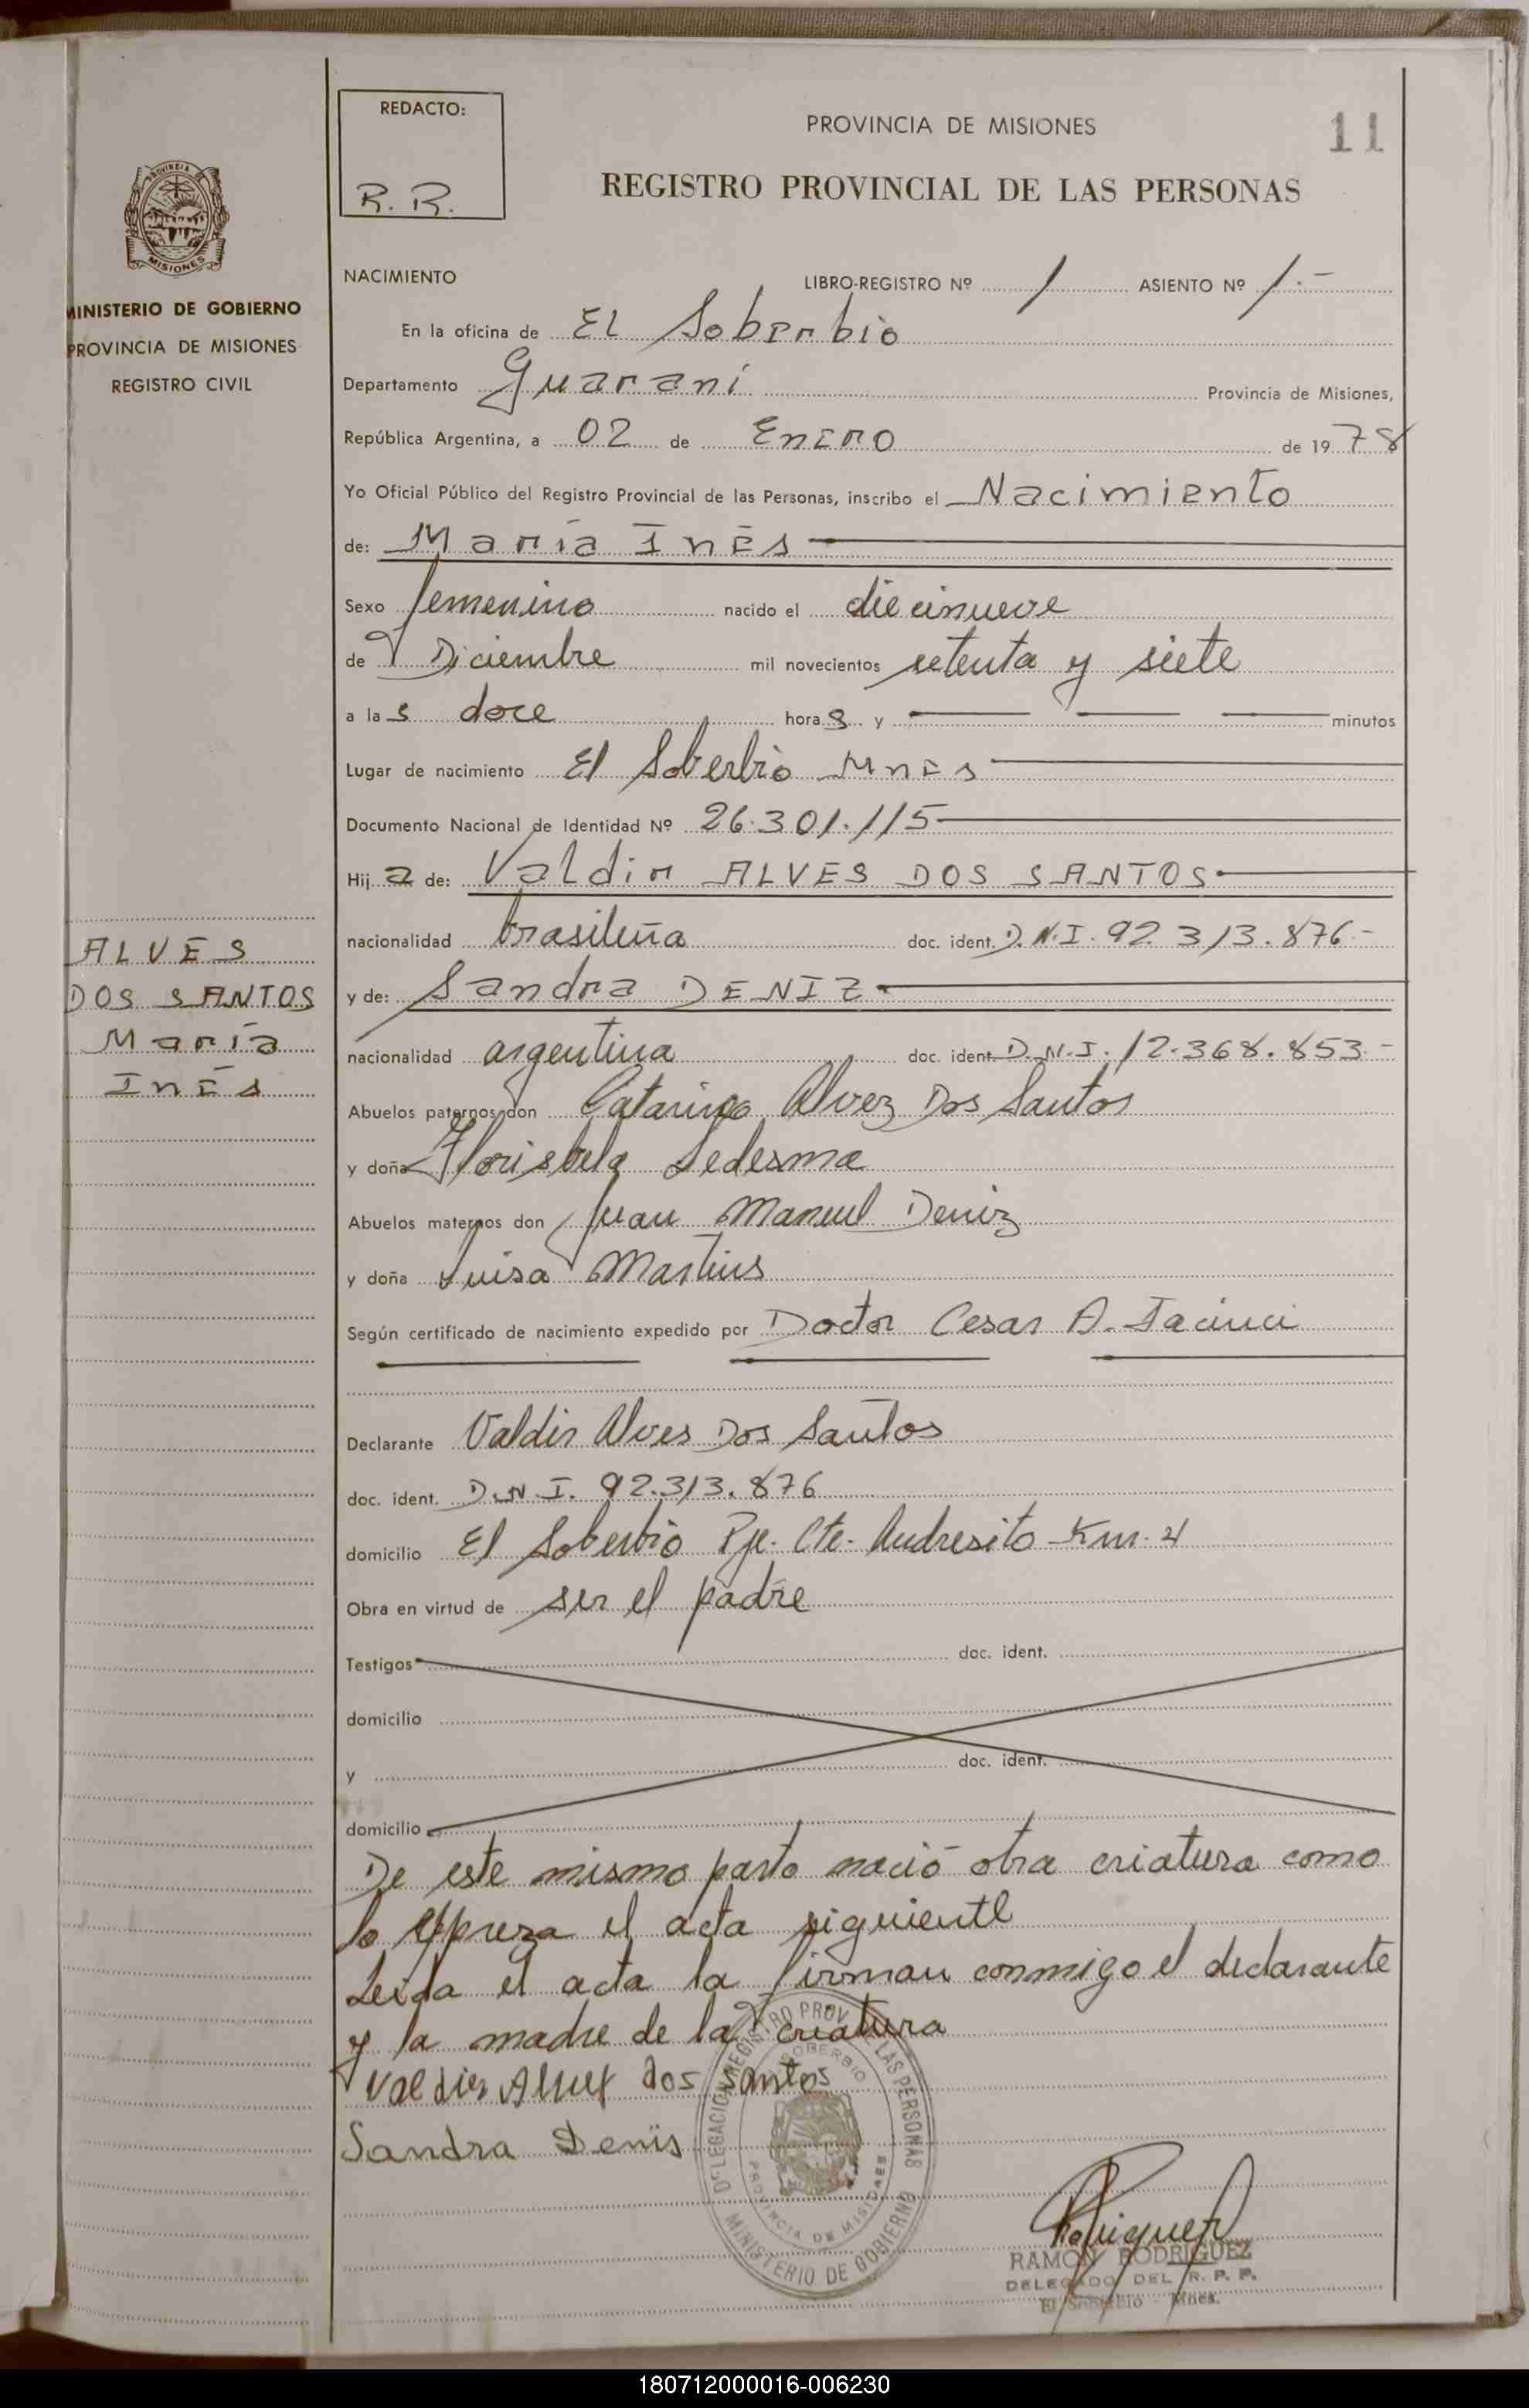 REDACTO:
R. R.
PROVINCIA DE MISIONES
11
REGISTRO PROVINCIAL DE LAS PERSONAS
PROVINCIA DE
MISIONES
MINISTERIO DE GOBIERNO
PROVINCIA DE MISIONES
REGISTRO CIVIL
NACIMIENTO LIBRO-REGISTRO Nº 1 ASIENTO Nº 1.-
En la oficina de El Soberbio
Departamento Guaraní Provincia de Misiones,
República Argentina, a 02 de Enero de 1978
Yo Oficial Público del Registro Provincial de las Personas, inscribo el Nacimiento
de: María Inés
Sexo femenino nacido el diecinueve
de Diciembre mil novecientos setenta y siete
a las doce horas y minutos
Lugar de nacimiento El Soberbio Mnes
Documento Nacional de Identidad Nº 26.301.115
Hija de: Valdir ALVES DOS SANTOS
nacionalidad brasileña doc. ident. D.N.I. 92.313.876.-
y de: Sandra DENIZ
nacionalidad argentina doc. ident. D.N.I. 12.368.853.-
ALVES
DOS SANTOS
María
Inés
Abuelos paternos don Catarino Alvez Dos Santos
y doña Florisbela Ledesma
Abuelos maternos don Juan Manuel Deniz
y doña Luisa Martins
Según certificado de nacimiento expedido por Doctor Cesar A.
Declarante Valdir Alves Dos Santos
doc. ident. D.N.I. 92.313.876
domicilio El Soberbio Pje. Cte. Andresito Km. 4
Obra en virtud de ser el padre
Testigos doc. ident.
domicilio
y doc. ident.
domicilio
De este mismo parto nació otra criatura como
lo expreza el acta siguiente
Leída el acta la firman conmigo el declarante
y la madre de la criatura
Valdir Alves dos santos
Sandra Denis
DELEGACION REGISTRO PROV. DE LAS PERSONAS
EL SOBERBIO
PROVINCIA DE MISIONES
MINISTERIO DE GOBIERNO
Rodriguez
RAMON RODRIGUEZ
DELEGADO DEL R. P. P.
El Soberbio - Mnes.
180712000016-006230